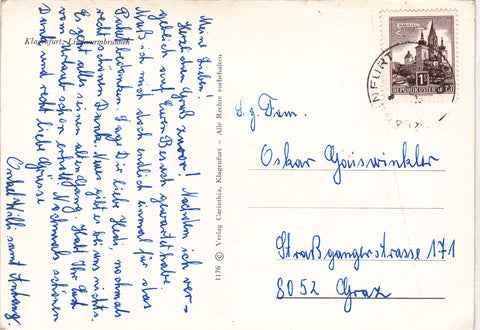 Klagenfurt, Lindwurmbrunnen
Meine Lieben!
Herzlichen Gruß zuvor! Nachdem ich ver-
geblich auf Euren Besuch gewartet habe,
muß ich mich doch endlich einmal für das
Paket bedanken. Sage Dir liebe Hedi, nochmals
recht schönen Dank. Neues gibt es bei uns nichts.
Es geht alles seinen alten Gang. Habt Ihr Euch
vom Urlaub schon erholt? Nochmals schönen
Dank und recht liebe Grüsse
Onkel Willi samt Anhang
1176 © Verlag Carinthia, Klagenfurt - Alle Rechte vorbehalten
REPUBLIK ÖSTERREICH
KLAGENFURT
S. g. Fam.
Oskar Gaiswinkler
Straßgangerstrasse 171
8052 Graz